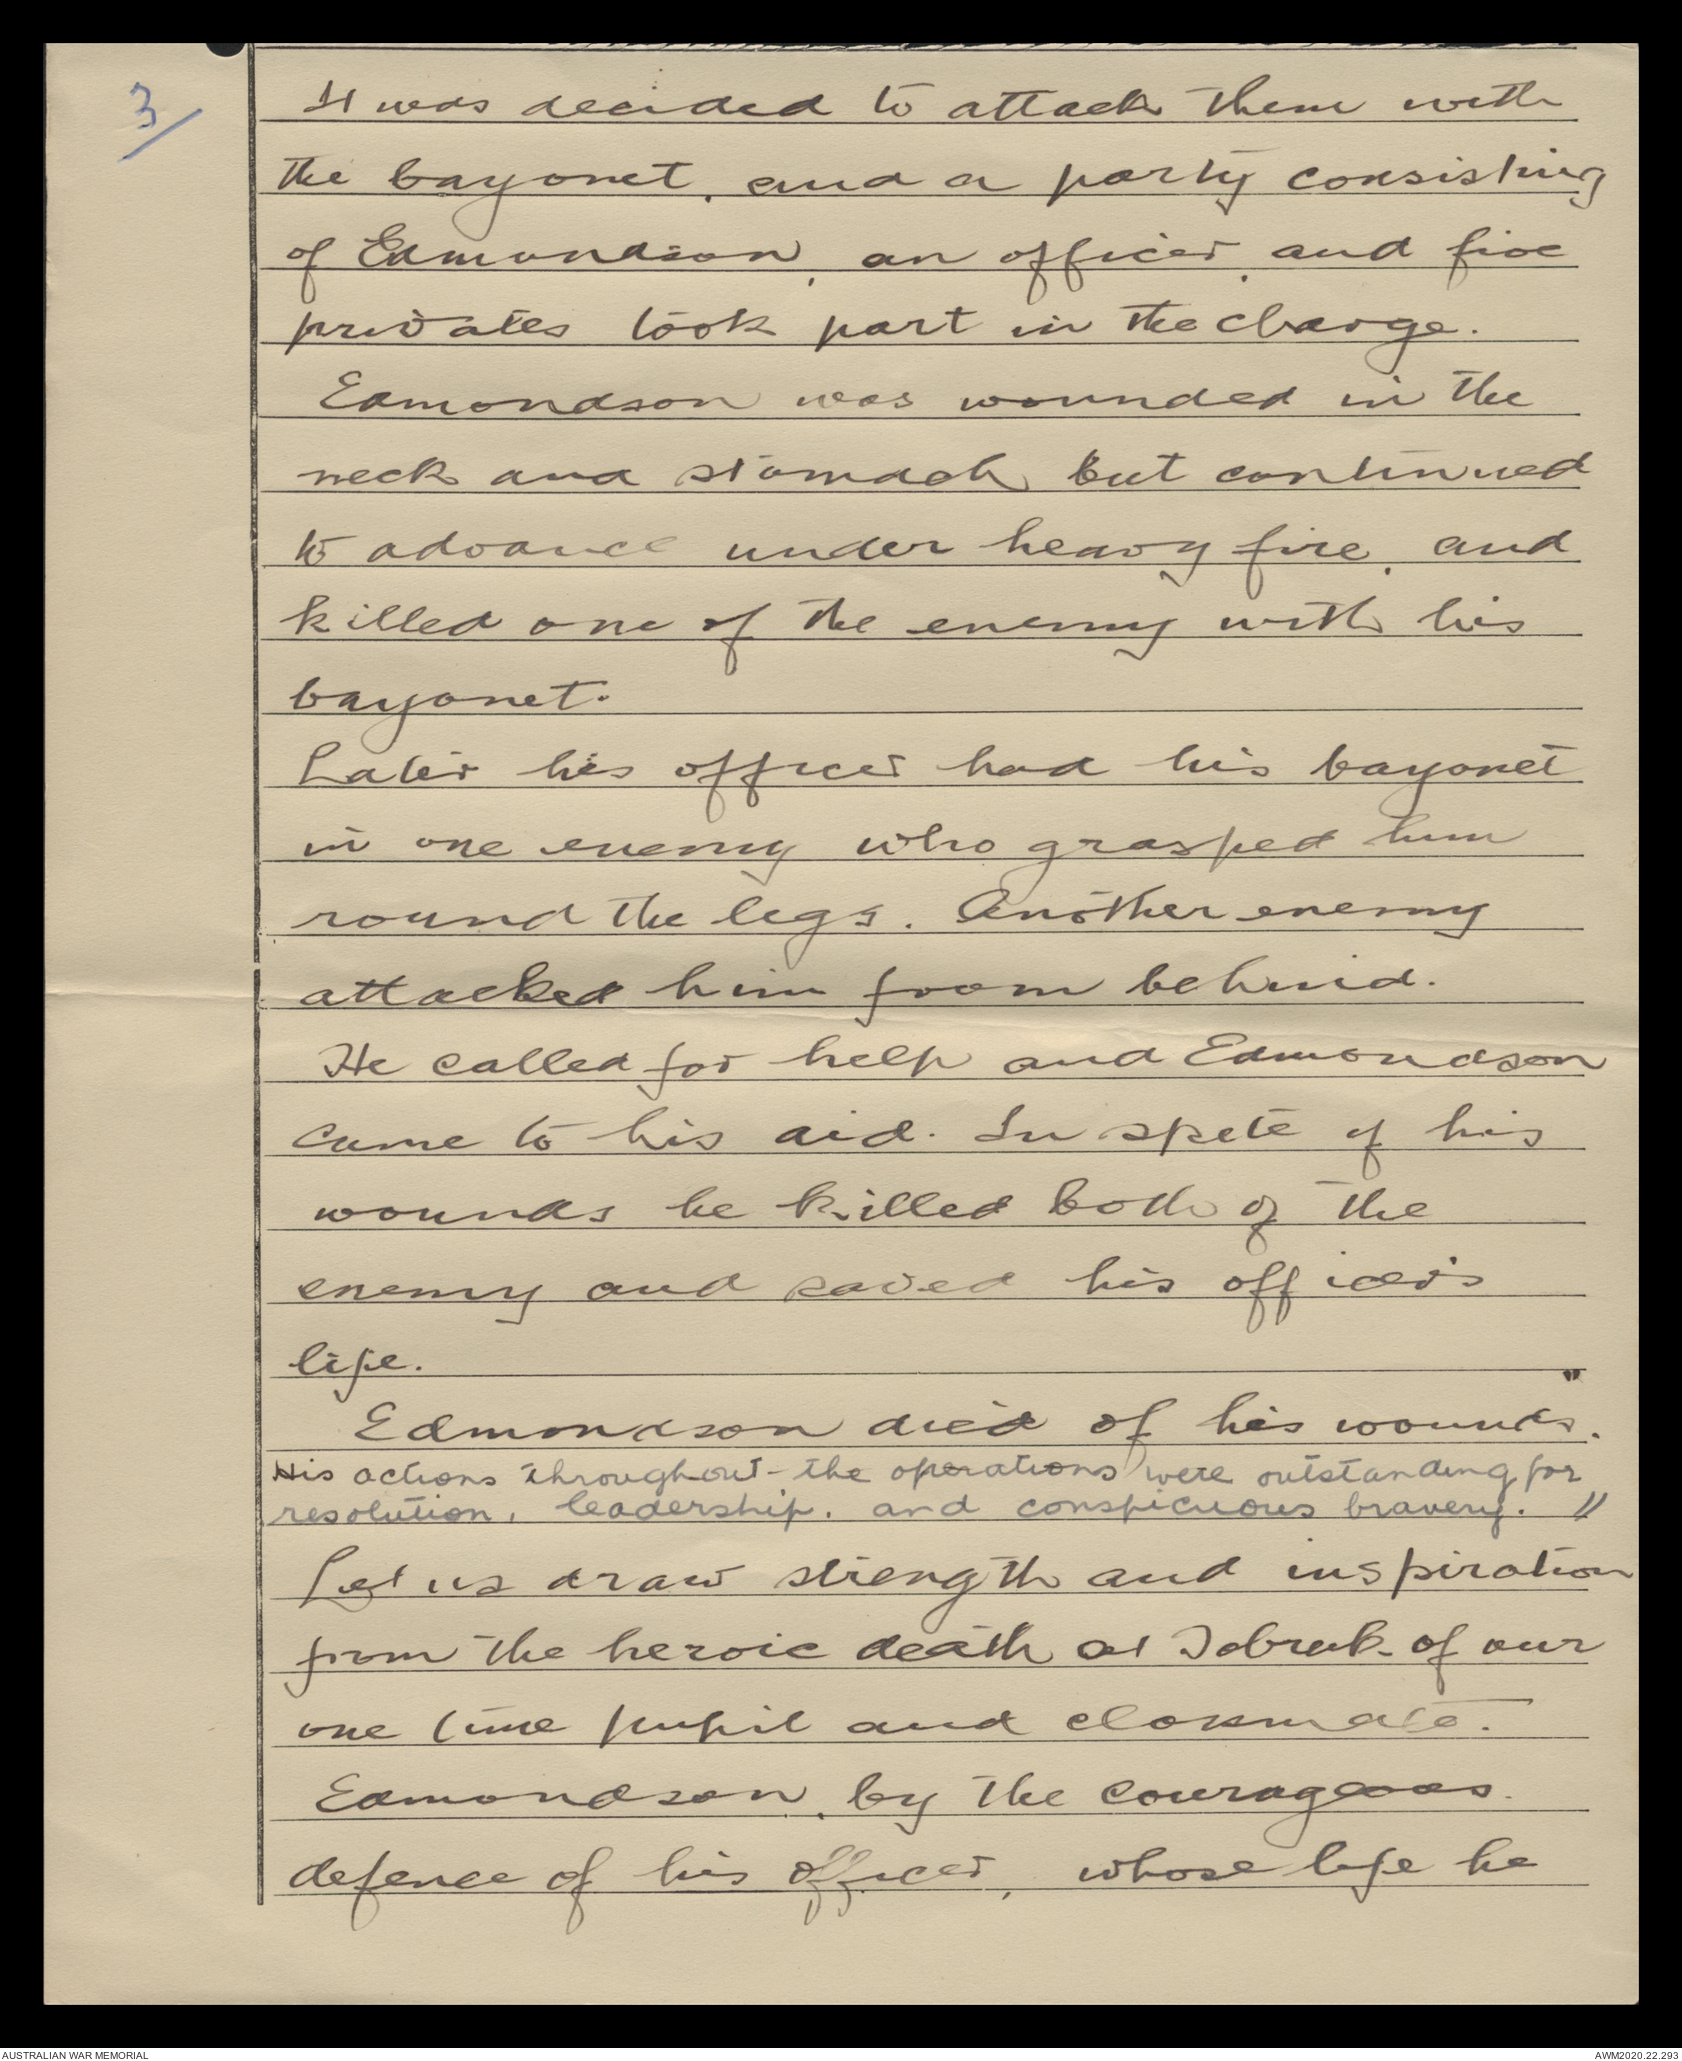 3/
It was decided to attack them with
the bayonet, and a party consisting
of Edmondson, an officer, and five
privates took part in the charge.
Edmondson was wounded in the
neck and stomach but continued
to advance under heavy fire, and
killed one of the enemy with his
bayonet.
Later his officer had his bayonet
in one enemy who grasped him
round the legs. Another enemy
attacked him from behind.
He called for help and Edmondson
came to his aid. In spite of his
wounds he killed both of the
enemy and saved his officer's
life.
Edmondson died of his wounds."
His actions throughout the operations were outstanding for
resolution, leadership, and conspicuous bravery. "
Let us draw strength and inspiration
from the heroic death at Tobruk of our
one time pupil and classmate.
Edmondson, by the courageous
defence of his officer, whose life he
AUSTRALIAN WAR MEMORIAL
AWM2020.22.293